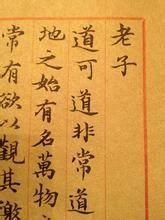 老子
道可道非常道
地之始有名萬物之
常有欲以觀其徼